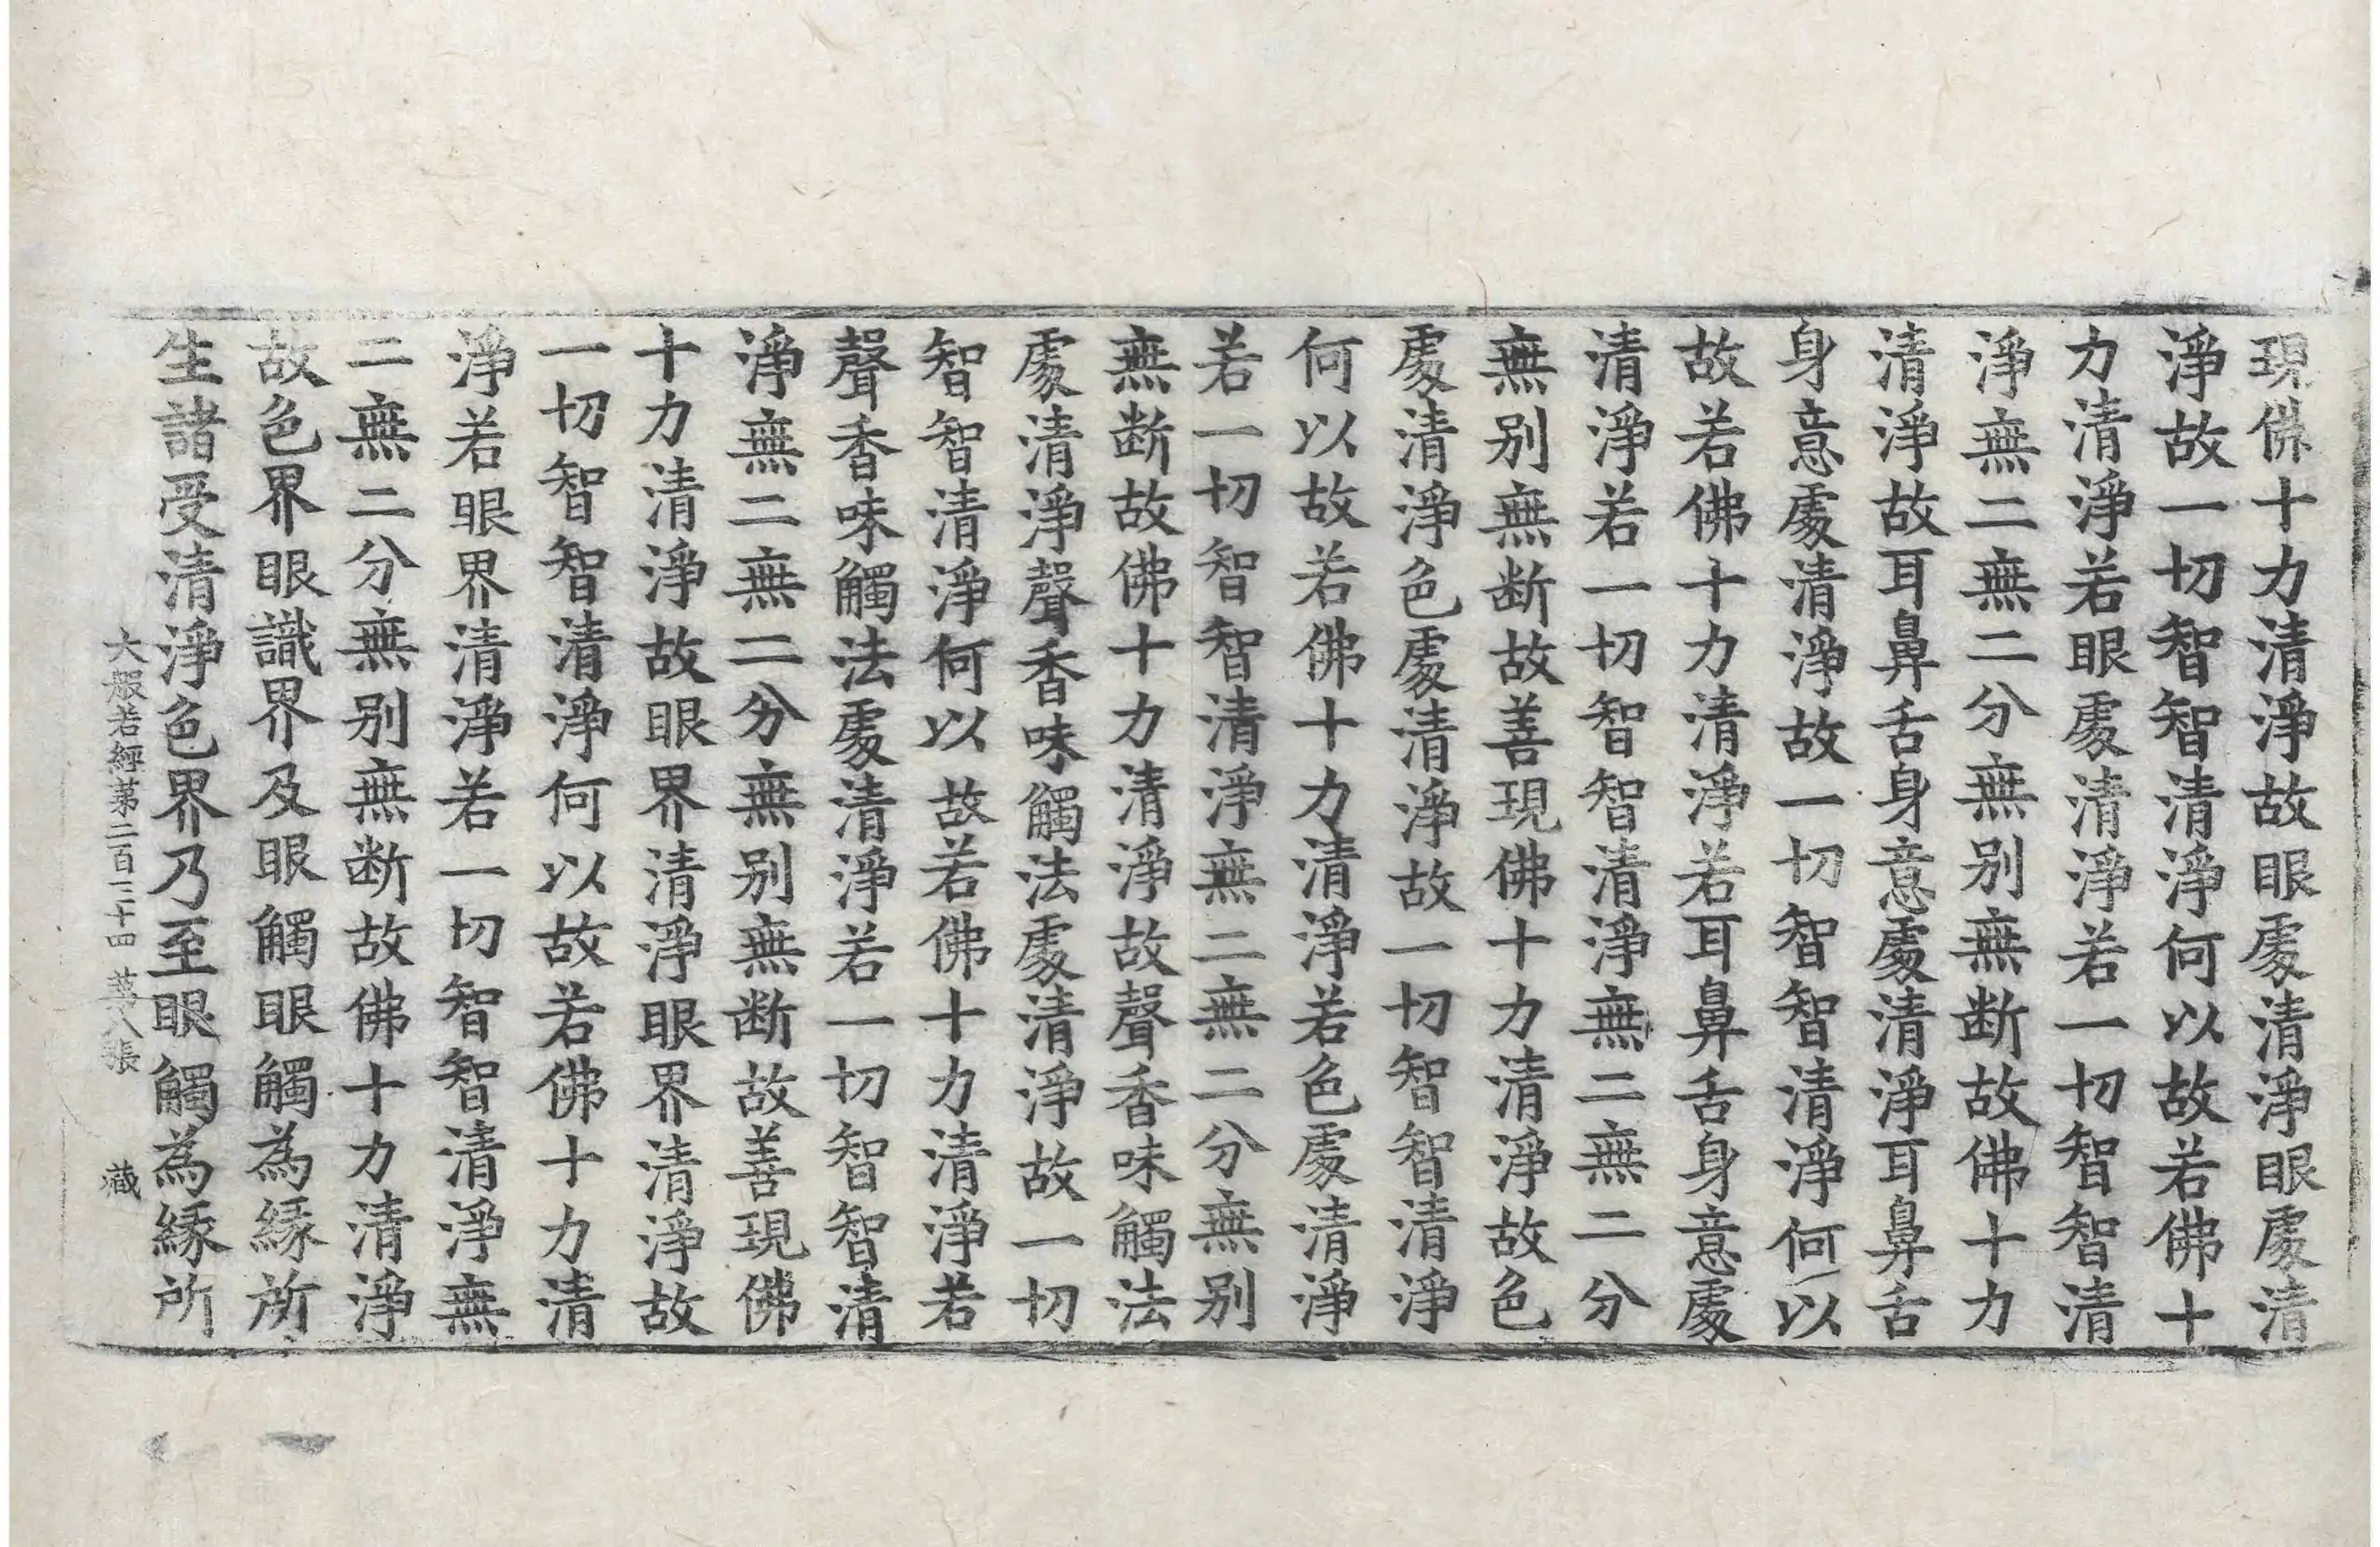 現佛十力清淨故眼處清淨眼處清
淨故一切智智清淨何以故若佛十
力清淨若眼處清淨若一切智智清
淨無二無二分無別無断故佛十力
清淨故耳鼻舌身意處清淨耳鼻舌
身意處清淨故一切智智清淨何以
故若佛十力清淨若耳鼻舌身意處
清淨若一切智智清淨無二無二分
無別無断故善現佛十力清淨故色
處清淨色處清淨故一切智智清淨
何以故若佛十力清淨若色處清淨
若一切智智清淨無二無二分無別
無断故佛十力清淨故聲香味觸法
處清淨聲香味觸法處清淨故一切
智智清淨何以故若佛十力清淨若
聲香味觸法處清淨若一切智智清
淨無二無二分無別無断故善現佛
十力清淨故眼界清淨眼界清淨故
一切智智清淨何以故若佛十力清
淨若眼界清淨若一切智智清淨無
二無二分無別無断故佛十力清淨
故色界眼識界及眼觸眼觸為緣所
生諸受清淨色界乃至眼觸為緣所
大般若經第二百三十四 第八張 藏